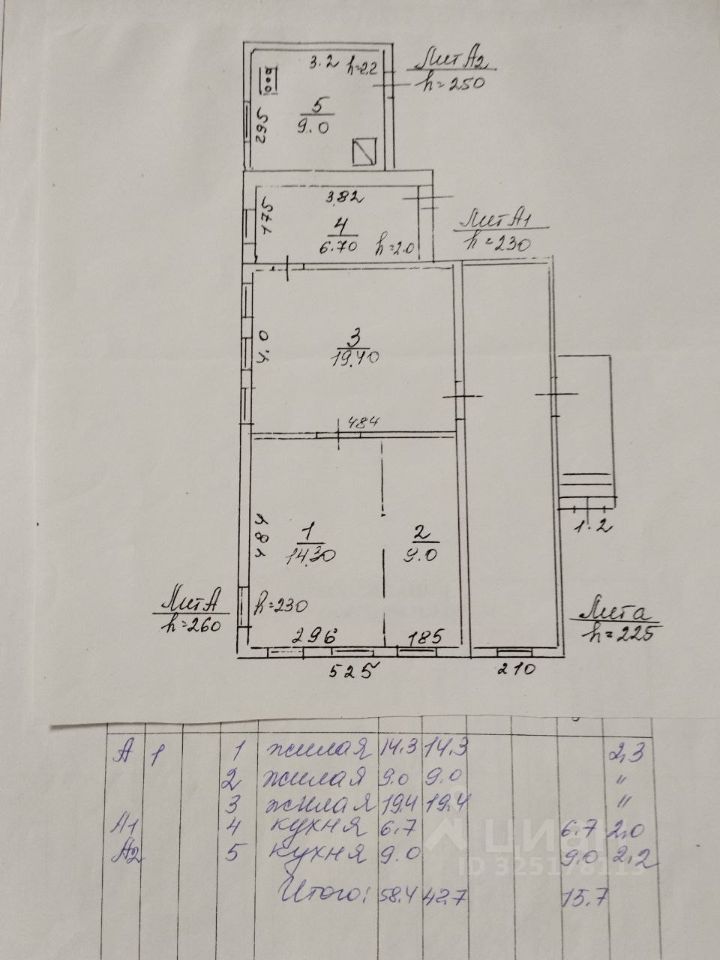 3.2 h=2.2
Лит А2
h=250
5
9.0
295
3.82
175
4
6.70 h=2.0
Лит А1
h=230
4.0
3
19.40
484
484
1
14.30
2
9.0
1.2
Лит А
h=260
h=230
Лит а
h=225
296 185
525 210
А 1 1 жилая 14,3 14,3 2,3
2 жилая 9.0 9.0 "
3 жилая 19,4 19,4 "
А1 4 кухня 6.7 6.7 2,0
А2 5 кухня 9.0 9.0 2,2
Итого: 58.4 42.7 15.7